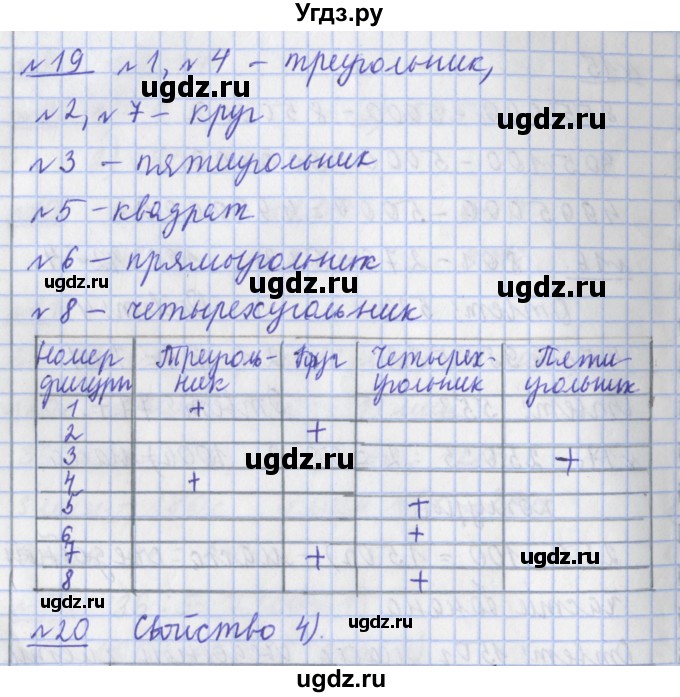 Угдз.ру
№19 №1, №4 – треугольник,
ugdz.ru
№2, №7 – круг
ugdz.ru
№3 – пятиугольник
№5 – квадрат
ugdz.ru
ugdz.ru
№6 – прямоугольник
№8 – четырехугольник
Номер фигуры Треуголь-ник Круг Четырех-угольник Пяти-угольник
1 +
2 +
3 +
ugdz.ru
4 +
5 +
6 +
7 +
ugdz.ru
8 +
ugdz.ru
ugdz.ru
№20 Свойство 4).
ugdz.ru